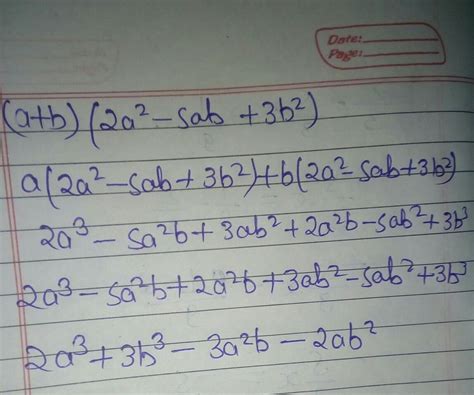 Date:
Page:
(a+b) (2a² - 5ab + 3b²)
a(2a² - 5ab + 3b²) + b(2a² - 5ab + 3b²)
2a³ - 5a²b + 3ab² + 2a²b - 5ab² + 3b³
2a³ - 5a²b + 2a²b + 3ab² - 5ab² + 3b³
2a³ + 3b³ - 3a²b - 2ab²